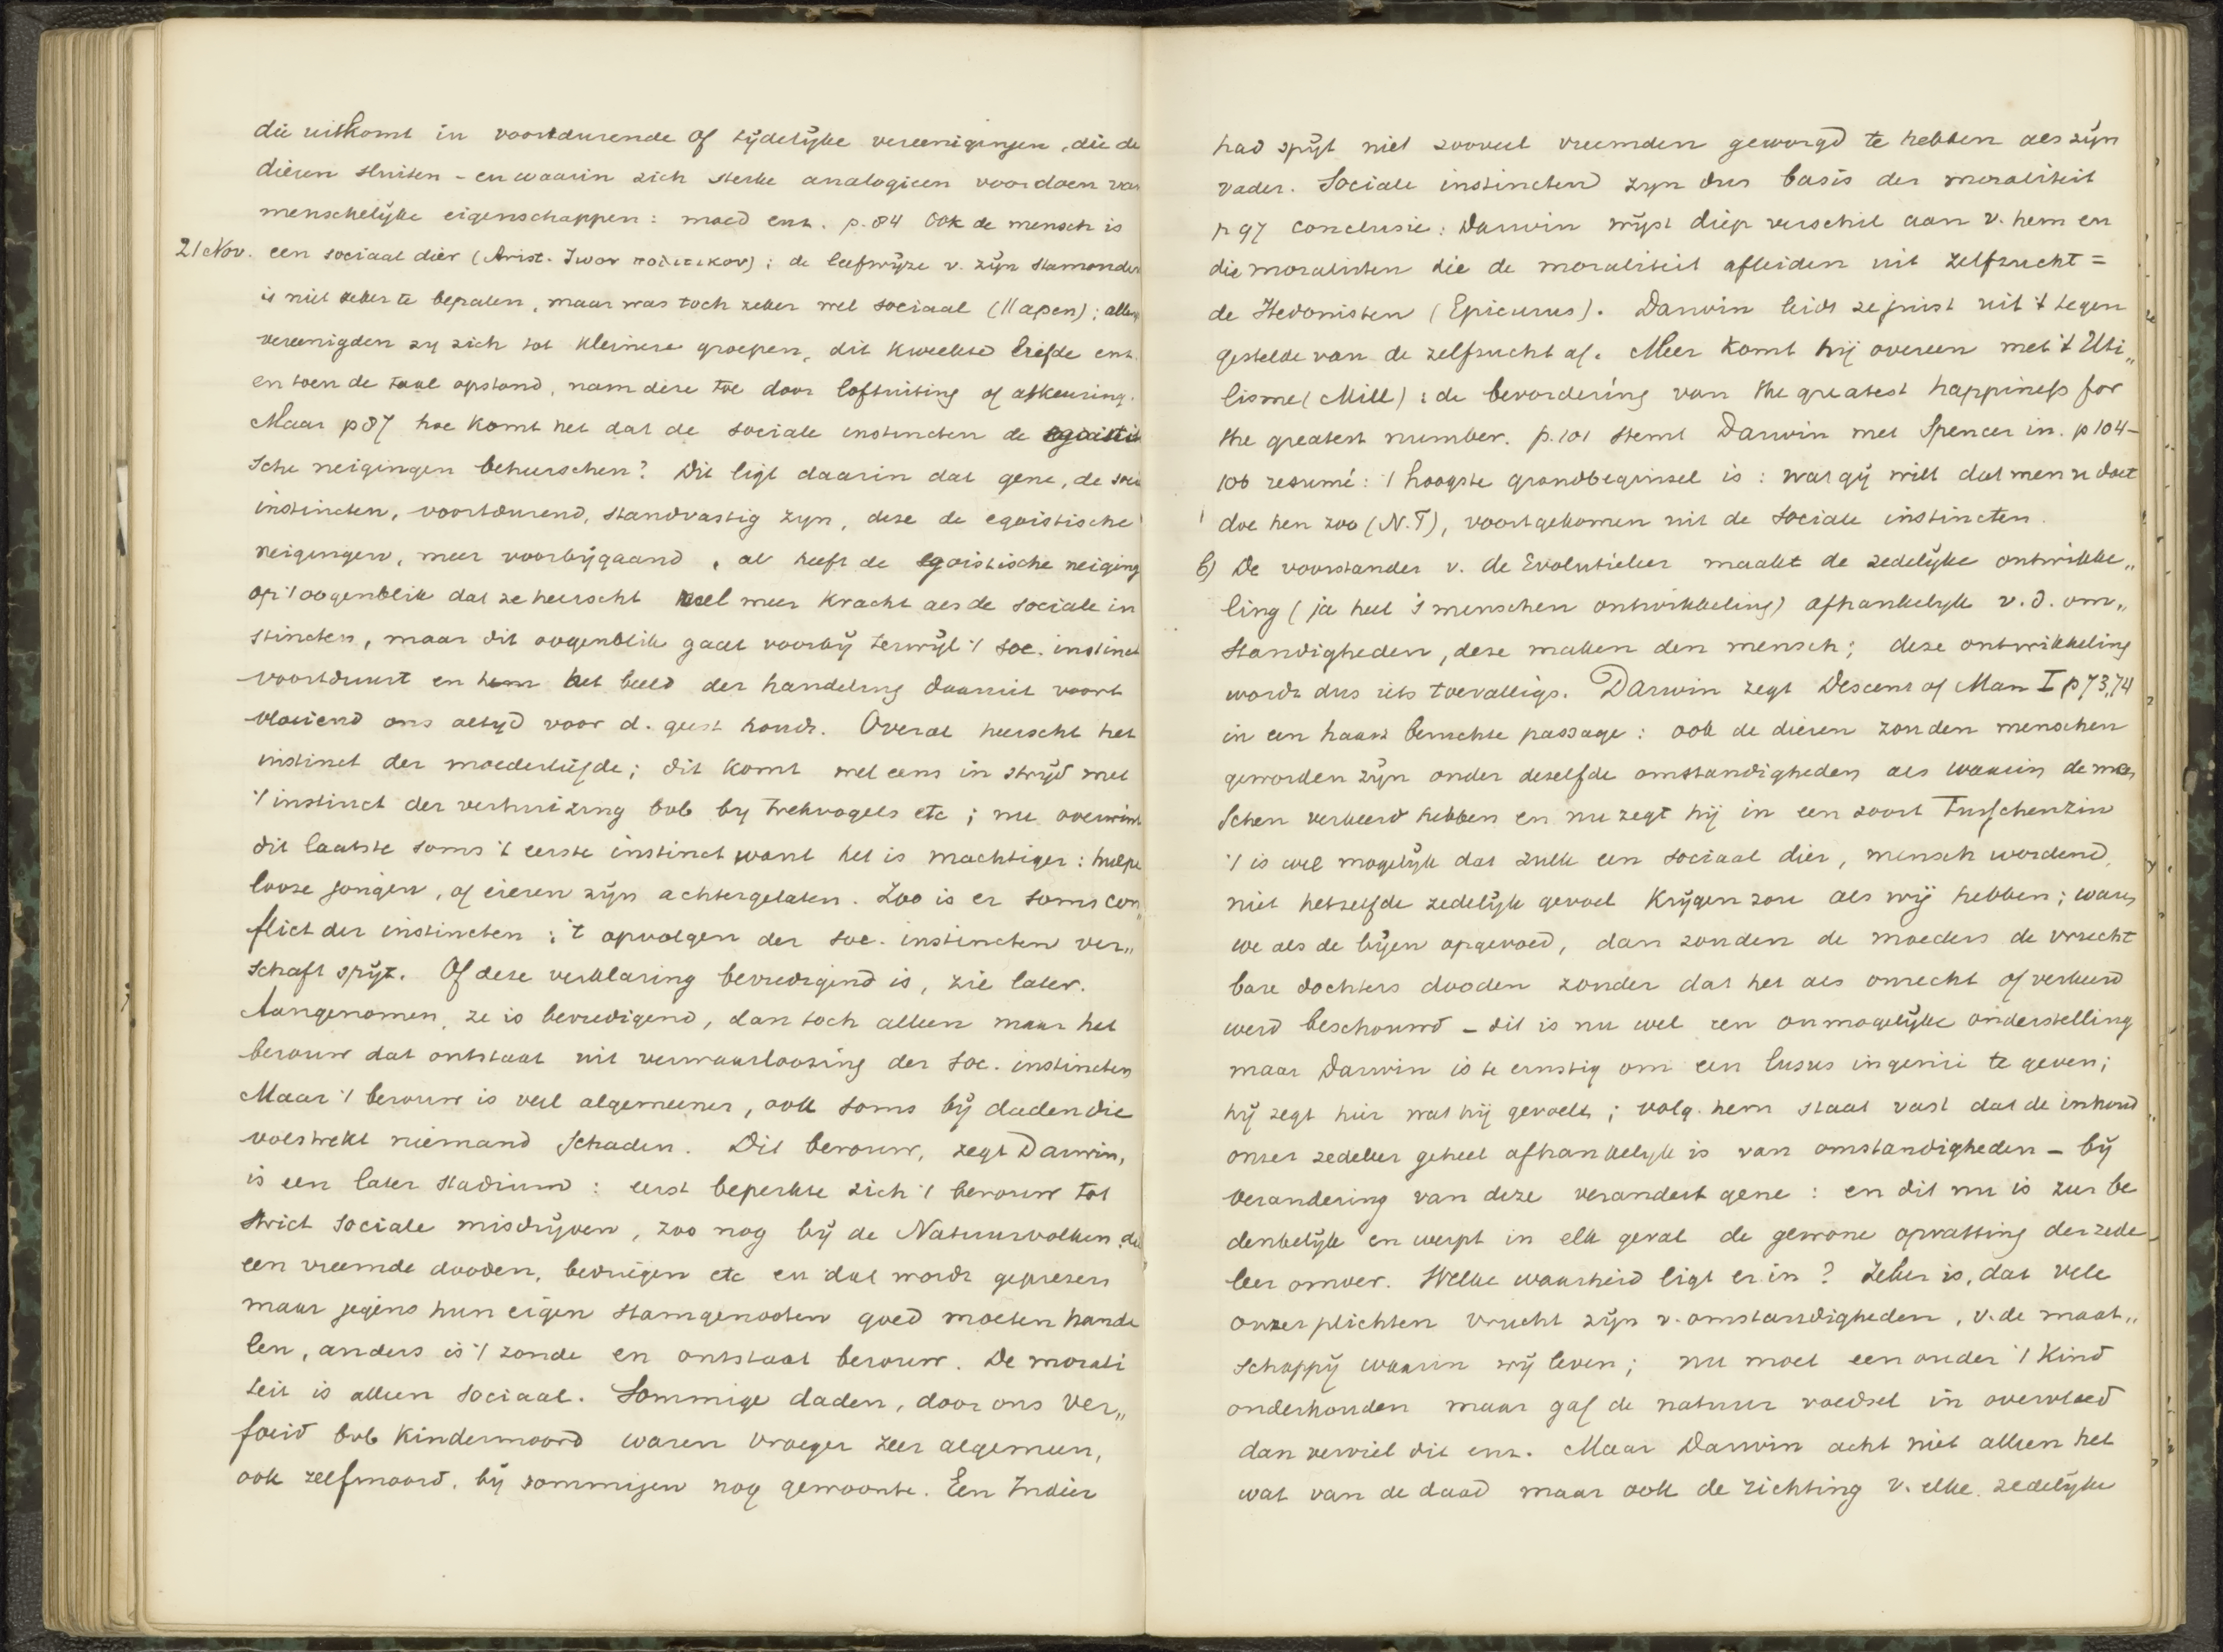 die uitkomt in voortdurende of tydelyke vereenigingen, die de
dieren sluiten - en waarin zich sterke analogieen voordoen van
menschelyke eigenschappen: moed enz. p. 84 Ook de mensch is
21 Nov. een sociaal dier (Arist. ζωον πολιτικον); de leefwyze v. zyn stamouders
is niet zeker te bepalen, maar was toch zeker wel sociaal (// apen);
vereenigden zy zich tot kleinere groepen, dit kweekte liefde enz.
en toen de taal opstond, nam deze toe door loftuiting of afkeuring.
Maar p 87 hoe komt het dat de sociale instincten de egoisti
sche neigingen beheerschen? Dit ligt daarin dat gene, de soc.
instincten, voortdurend, standvastig zyn, deze de egoistische
neigingen, meer voorbijgaand, al heeft de egoistische neiging
op 't oogenblik dat ze heerscht veel meer kracht als de sociale in
stincten, maar dit oogenblik gaat voorbij terwyl 't soc. instinct
voortduurt en het beeld der handeling daaruit voort
vloeiend ons altyd voor d. geest houdt. Overal heerscht het
instinct der moederliefde; dit komt wel eens in stryd met
't instinct der verhuizing bvb by trekvogels etc; nu overwint
dit laatste soms 't eerste instinct want het is machtiger: hulpe
loose jongen, of eieren zijn achtergelaten. Zoo is er soms con„
flict der instincten; 't opvolgen der soc. instincten ver„
schaft spijt. Of deze verklaring bevredigend is, zie later.
Aangenomen, ze is bevredigend, dan toch alleen maar het
berouw dat ontstaat uit verwaarloozing der soc. instincten
Maar 't berouw is veel algemeener, ook soms bij daden die
volstrekt niemand schaden. Dit berouw, zegt Darwin,
is een later stadium: eerst beperkte zich 't berouw tot
strict sociale misdrijven, zoo nog bij de Natuurvolken die
een vreemde dooden, bedriegen etc en dat wordt geprezen
maar jegens hun eigen stamgenooten goed moeten hande
len, anders is 't zonde en ontstaat berouw. De morali
teit is alleen sociaal. Sommige daden, door ons ver„
foeid bvb kindermoord waren vroeger zeer algemeen,
ook zelfmoord, bij sommigen nog gewoonte. Een Indier
had spijt niet zooveel vreemden geworgd te hebben als zijn
vader. Sociale instincten zyn dus basis der moraliteit
p 97 conclusie: Darwin wijst diep verschil aan v. hem en
die moralisten die de moraliteit afleiden uit zelfzucht =
de Hedonisten (Epicurus). Darwin leidt ze juist uit 't tegen
gestelde van de zelfzucht af. Meer komt hij overeen met 't Uti„
lisme (Mill): de bevordering van the greatest happiness for
the greatest number. p. 101 stemt Darwin met Spencer in. p 104–
106 resumé: 't hoogste grondbeginsel is: wat gij wilt dat men u doet
doe hen zoo (N.T), voortgekomen uit de sociale instincten.
b) De voorstander v. de Evolutieleer maakt de zedelijke ontwikke„
ling (ja heel 's menschen ontwikkeling) afhankelyk v.d. om„
standigheden, deze maken den mensch; deze ontwikkeling
wordt dus iets toevalligs. Darwin zegt Descent of Man I p 73,74
in een haast beruchte passage: ook de dieren zouden menschen
geworden zijn onder dezelfde omstandigheden als waarin de men
schen verkeerd hebben en nu zegt hij in een soort Tusschenzin
't is wel mogelijk dat zulk een sociaal dier, mensch wordend,
niet hetzelfde zedelijk gevoel krijgen zou als wij hebben; waren
we als de bijen opgevoed, dan zouden de moeders de vrucht
bare dochters dooden zonder dat het als onrecht of verkeerd
werd beschouwd – dit is nu wel een onmogelijke onderstelling
maar Darwin is te ernstig om een lusus ingenii te geven;
hij zegt hier wat hij gevoelt; volg. hem staat vast dat de inhoud
onzer zedeleer geheel afhankelyk is van omstandigheden – bij
verandering van deze verandert gene: en dit nu is zeer be
denkelijk en werpt in elk geval de gewone opvatting der zede
leer omver. Welke waarheid ligt er in? Zeker is, dat vele
onzer plichten vrucht zijn v. omstandigheden, v. de maat„
schappij waarin wij leven; nu moet een ouder 't kind
onderhouden maar gaf de natuur voedsel in overvloed
dan verviel dit enz. Maar Darwin acht niet alleen het
wat van de daad maar ook de richting v. elke zedelijke